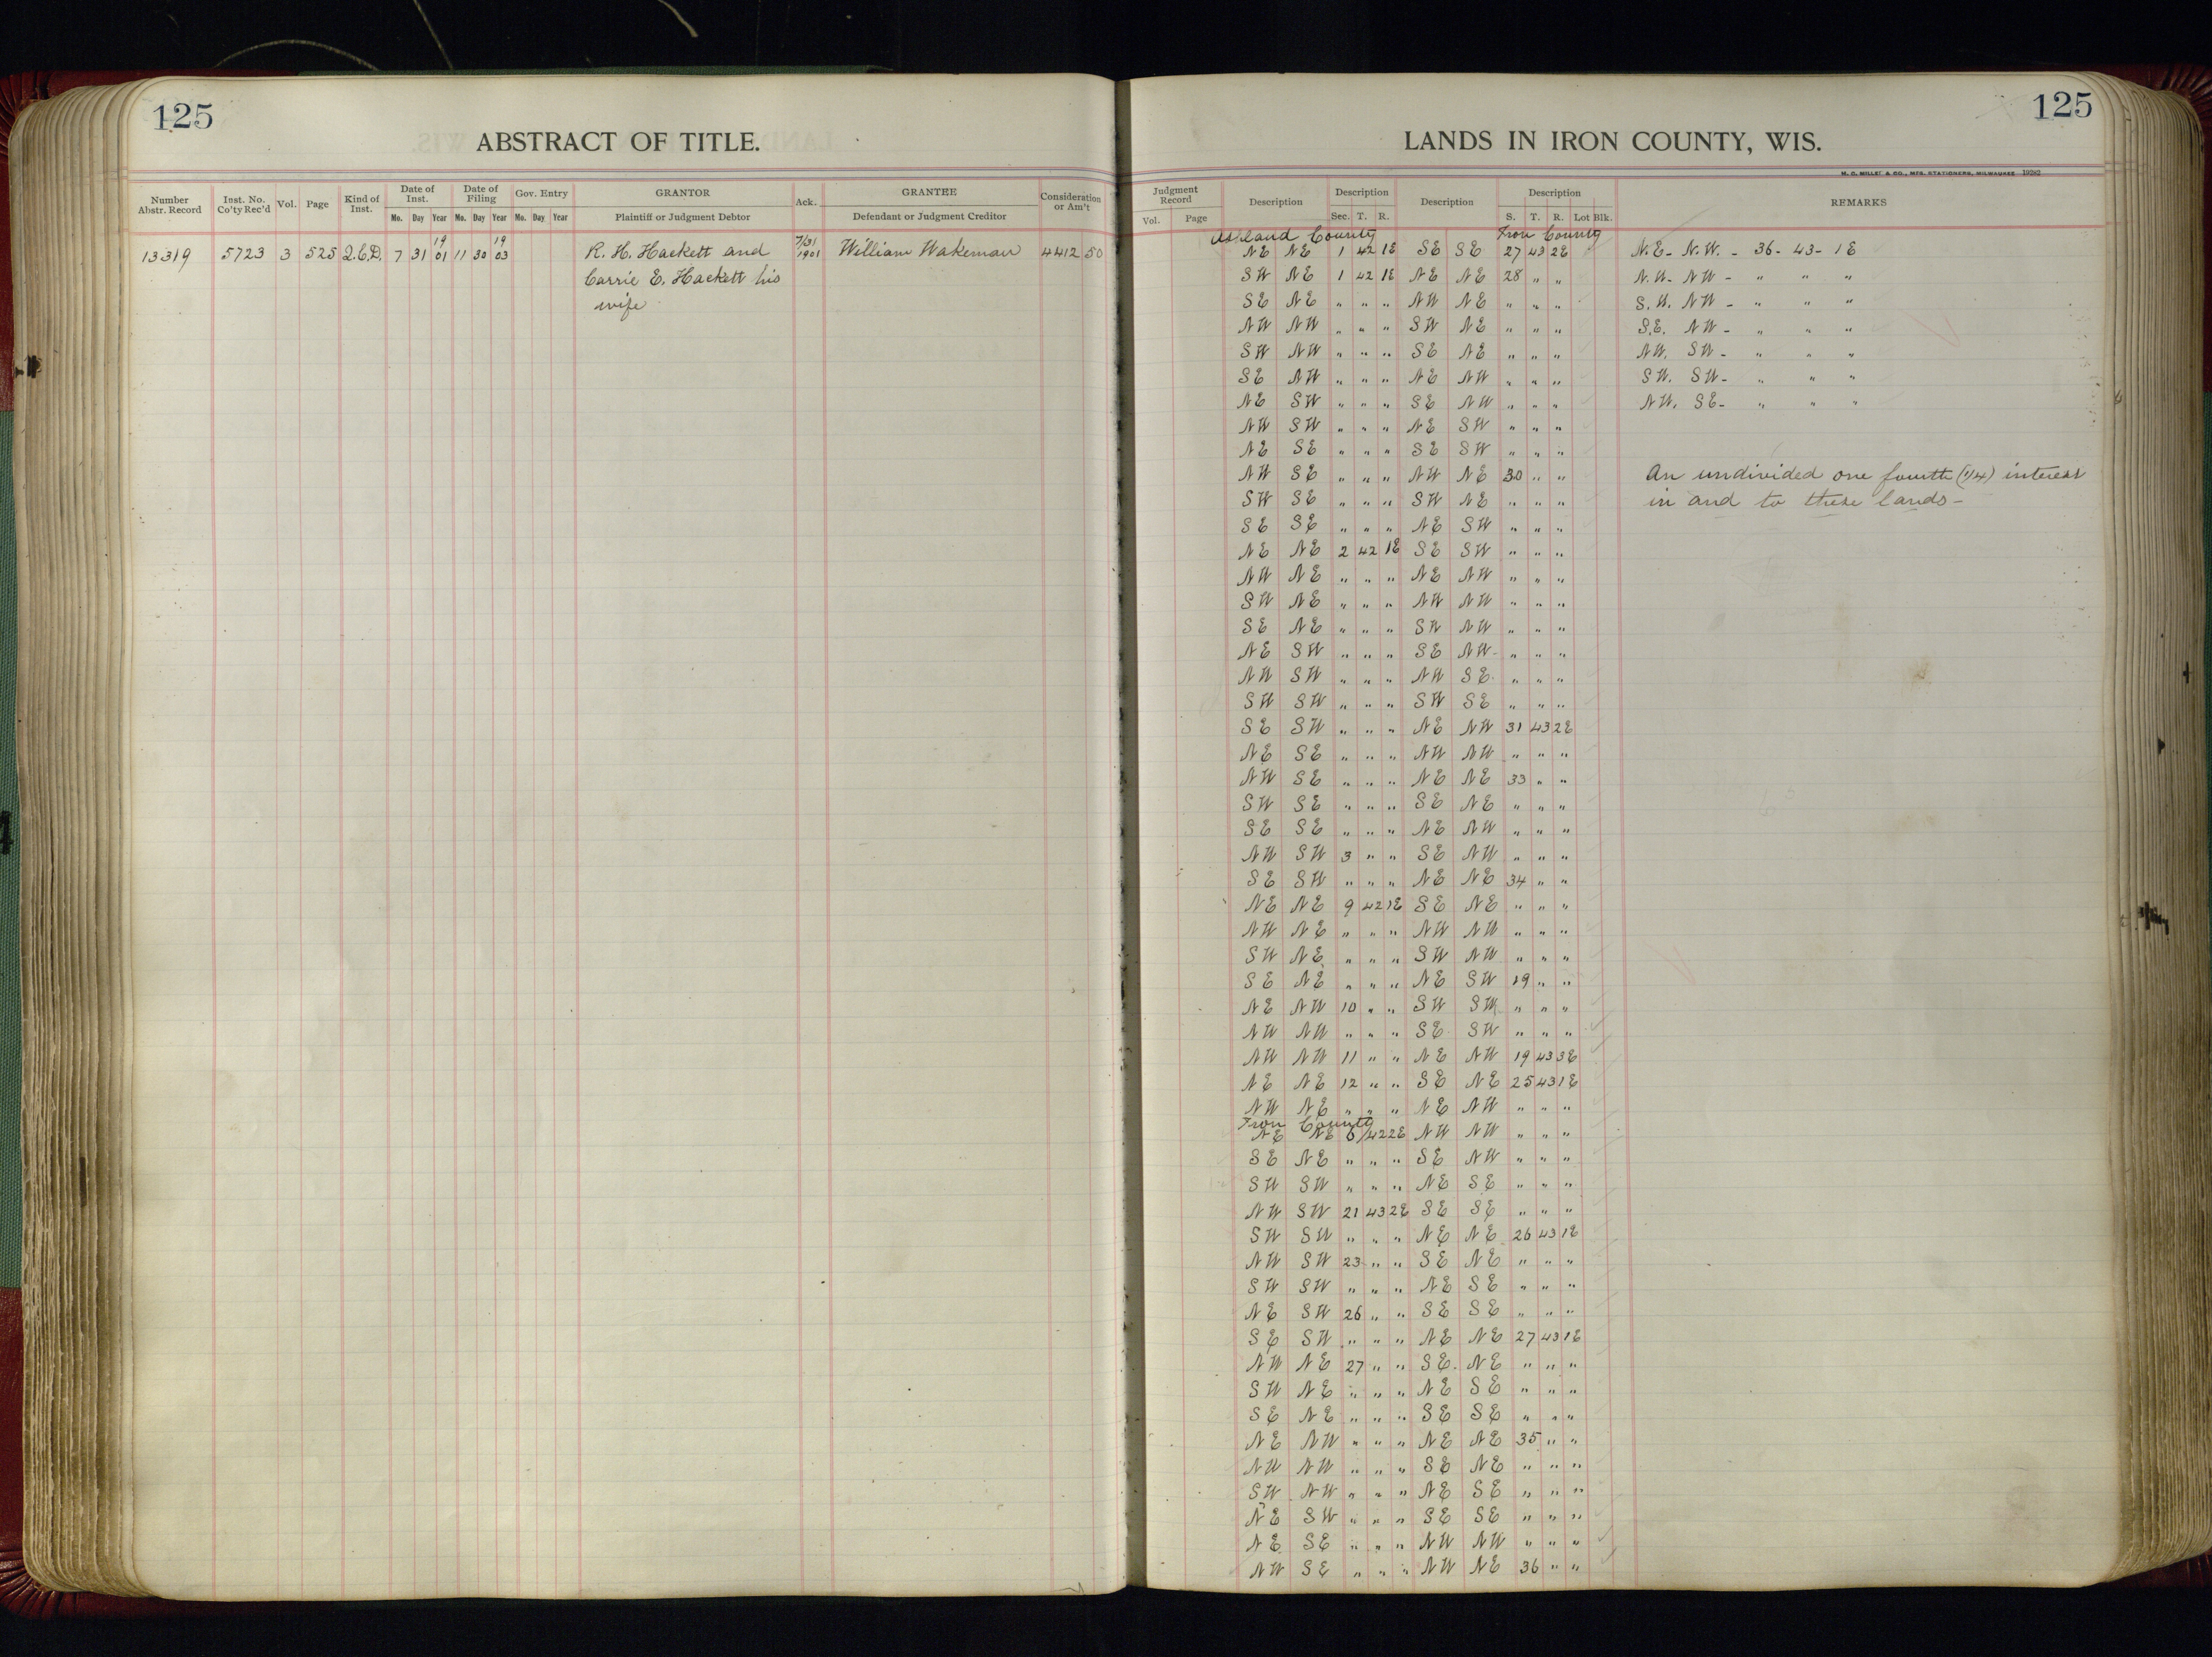 125
ABSTRACT OF TITLE.
Number Abstr. Record Inst. No. Co'ty Rec'd Vol. Page Kind of Inst. Date of Inst. Date of Filing Gov. Entry GRANTOR Ack. GRANTEE Consideration or Am't
Mo. Day Year Mo. Day Year Mo. Day Year Plaintiff or Judgment Debtor Defendant or Judgment Creditor
13319 5723 3 525 Q.C.D. 7 31 1901 11 30 1903 R. H. Hackett and 7/31 1901 William Wakeman 4412 50
Carrie E. Hackett his
wife
125
LANDS IN IRON COUNTY, WIS.
H. C. MILLER & CO., MFG. STATIONERS, MILWAUKEE 19282
Judgment Record Description Description Description Description REMARKS
Vol. Page Sec. T. R. S. T. R. Lot Blk.
Ashland County Iron County
NE NE 1 42 1E SE SE 27 43 2E N.E. - N.W. - 36 - 43 - 1E
SW NE 1 42 1E NE NE 28 " " N.W. - NW - " " "
SE NE " " " NW NE " " " S.W. NW - " " "
NW NW " " " SW NE " " " S.E. NW - " " "
SW NW " " " SE NE " " " NW. SW - " " "
SE NW " " " NE NW " " " SW. SW - " " "
NE SW " " " SE NW " " " NW. SE - " " "
NW SW " " " NE SW " " "
NE SE " " " SE SW " " "
NW SE " " " NW NE 30 " " An undivided one fourth (1/4) interest
SW SE " " " SW NE " " " in and to these lands -
SE SE " " " NE SW " " "
NE NE 2 42 1E SE SW " " "
NW NE " " " NE NW " " "
SW NE " " " NW NW " " "
SE NE " " " SW NW " " "
NE SW " " " SE NW " " "
NW SW " " " NW SE " " "
SW SW " " " SW SE " " "
SE SW " " " NE NW 31 43 2E
NE SE " " " NW NW " " "
NW SE " " " NE NE 33 " "
SW SE " " " SE NE " " "
SE SE " " " NE NW " " "
NW SW 3 " " SE NW " " "
SE SW " " " NE NE 34 " "
NE NE 9 42 1E SE NE " " "
NW NE " " " NW NW " " "
SW NE " " " SW NW " " "
SE NE " " " NE SW 19 " "
NE NW 10 " " SW SW " " "
NW NW " " " SE SW " " "
NW NW 11 " " NE NW 19 43 3E
NE NE 12 " " SE NE 25 43 1E
NW NE " " " NE NW " " "
Iron County
NE NE 6 42 2E NW NW " " "
SE NE " " " SE NW " " "
SW SW " " " NE SE " " "
NW SW 21 43 2E SE SE " " "
SW SW " " " NE NE 26 43 1E
NW SW 23 " " SE NE " " "
SW SW " " " NE SE " " "
NE SW 26 " " SE SE " " "
SE SW " " " NE NE 27 43 1E
NW NE 27 " " SE NE " " "
SW NE " " " NE SE " " "
SE NE " " " SE SE " " "
NE NW " " " NE NE 35 " "
NW NW " " " SE NE " " "
SW NW " " " NE SE " " "
NE SW " " " SE SE " " "
NE SE " " " NW NW " " "
NW SE " " " NW NE 36 " "